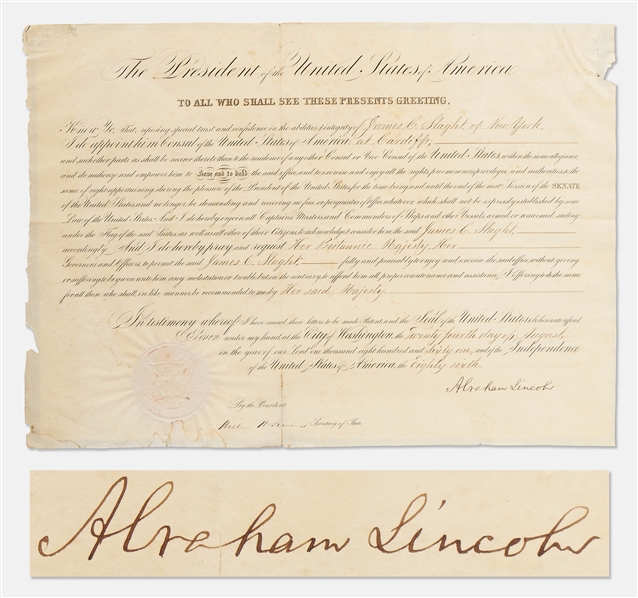 The President of the United States of America
TO ALL WHO SHALL SEE THESE PRESENTS GREETING.
Know Ye, That, reposing special trust and confidence in the abilities & integrity of James C. Slaght of New York.
I do appoint him Consul of the United States of America at Cardiff,
and such other parts as shall be nearer thereto than to the residence of any other Consul or Vice Consul of the United States, within the same allegiance
and do authorize and empower him to have and to hold the said office, and to exercise and enjoy all the rights, preeminences, privileges, and authorities to the
same of right appertaining, during the pleasure of the President of the United States for the time being and until the end of the next Session of the SENATE
of the United States, and no longer, he demanding and receiving no fees or perquisites of office whatever, which shall not be expressly established by some
Law of the United States. And I do hereby enjoin all Captains, Masters, and Commanders of Ships and other Vessels, armed or unarmed, sailing
under the Flag of the said States, as well as all other of their Citizens, to acknowledge & consider him the said James C. Slaght
accordingly. And I do hereby pray and request Her Britannic Majesty, Her
Governors and Officers to permit the said James C. Slaght fully and peaceably to enjoy and exercise the said office, without giving
or suffering to be given unto him any molestation or trouble, but on the contrary to afford him all proper countenance and assistance, I offering to do the same
for all those who shall, in like manner, be recommended to me by Her said Majesty.
In testimony whereof, I have caused these letters to be made Patent, and the Seal of the United States, to be hereunto affixed
Given under my hand, at the City of Washington, the Twenty fourth day of August
in the year of our Lord one thousand eight hundred and Sixty one, and of the Independence
of the United States of America, the Eighty sixth.
Abraham Lincoln
By the President
Secretary of State
Abraham Lincoln